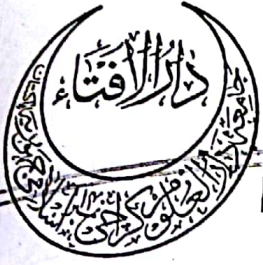 دارُالاِفتَاء
جامعہ دارالعلوم کراچی